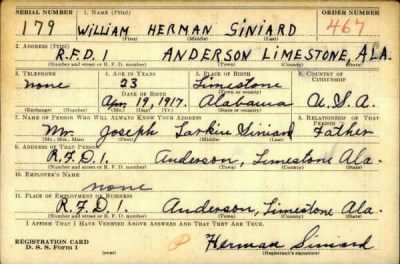 SERIAL NUMBER 1. NAME (Print) ORDER NUMBER
179 WILLIAM HERMAN SINIARD 467
(First) (Middle) (Last)
2. ADDRESS (Print)
R.F.D. 1 ANDERSON LIMESTONE, ALA.
(Number and street or R. F. D. number) (Town) (County) (State)
3. TELEPHONE 4. AGE IN YEARS 5. PLACE OF BIRTH 6. COUNTRY OF CITIZENSHIP
none 23 Limestone
DATE OF BIRTH (Town or county)
Apr. 19, 1917. Alabama U.S.A.
(Exchange) (Number) (Mo.) (Day) (Yr.) (State or country)
7. NAME OF PERSON WHO WILL ALWAYS KNOW YOUR ADDRESS 8. RELATIONSHIP OF THAT PERSON
Mr. Joseph Larkin Siniard Father
(Mr., Mrs., Miss) (First) (Middle) (Last)
9. ADDRESS OF THAT PERSON
R.F.D.1. Anderson, Limestone Ala.
(Number and street or R. F. D. number) (Town) (County) (State)
10. EMPLOYER'S NAME
none
11. PLACE OF EMPLOYMENT OR BUSINESS
R.F.D. 1. Anderson, Limestone Ala.
(Number and street or R. F. D. number) (Town) (County) (State)
I AFFIRM THAT I HAVE VERIFIED ABOVE ANSWERS AND THAT THEY ARE TRUE.
REGISTRATION CARD
D. S. S. Form 1 Herman Siniard
(Registrant's signature)